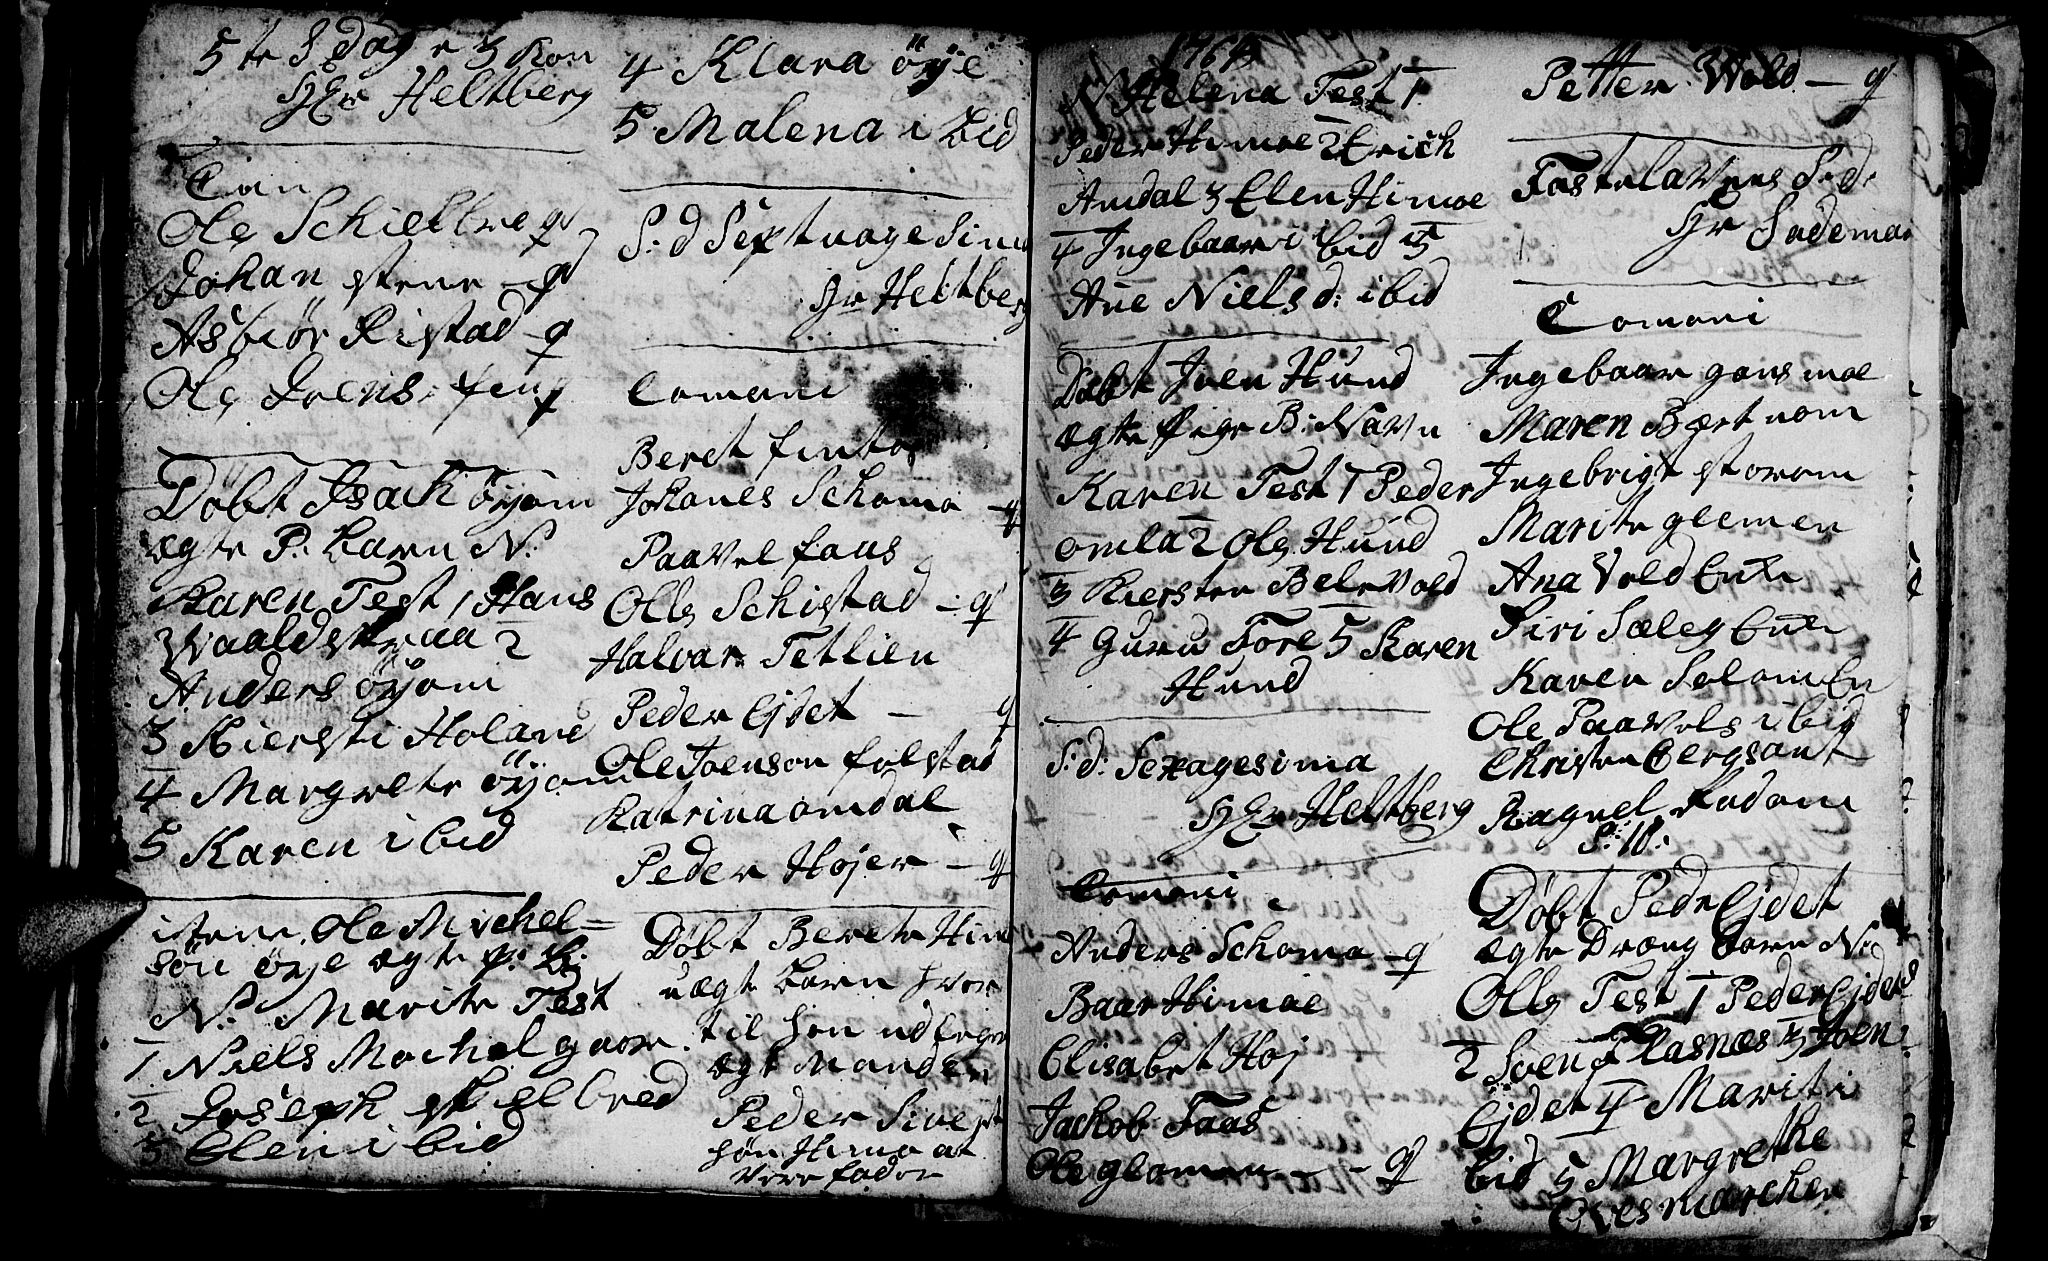 5te S dag e 3 Kon
Hr Heltberg
Com
Ole Schieltre q
Johan stene - q
Asbiør Ristad - q
Ole Joens: q
Døbt Isach öyom
ægte P: barn N:
Karen Test 1 Hans
Waaldstraa 2
Anders öyom
3 Kiersti Holand
4 Margrete öyom
5 Karen ibid
item Ole Michel=
søn öye ægte p: B:
N: Marite Test
1 Niels Mochelgaar
2 Joseph skielbred
3 Elen ibid
4 Klara öye
5 Malena i bid
S: d Septuagesima
Hr Heltberg
Comuni
Beret
Johanes Schomo - q
Paavel faas
Ole Schistad - q
Halvar Tetlien
Peder Ejdet - q
Ole Joenson folstad
Katrina omdal
Peder Højer - q
Døbt Berete Him
uægte barn hvor
til hon udlegge
ægt Manden
Peder Sivert
søn Himo at
være fader
1764
N Helena Test 1
Peder Himoe 2 Erich
Amdal 3 Elen Himoe
4 Ingebaar i bid 5
Ane Niels d: ibid
Døbt Joen Hund
ægte Pige B: Navn
Karen Test 1 Peder
omla 2 Ole Hund
3 Kiersten Belevold
4 Guru Fore 5 Karen
Hund
S: d: Sexagesima
Hr Heltberg
Comuni
Anders Schomo - q
Baar Himoe
Elisabet Høj
Jachob Faas
Ole glomen - - q
Petter Wold - q
Fastelavens S: d:
Hr Sademan
Comuni
Ingebaar gansmoe
Maren Bertnom
Ingebrigt storom
Marite glemen
Ana Vold Enke
Siri Sæleg Enke
Karen Solom En
Ole Paavels ibid
Christen Bergsaut
Ragnel Kadom
S: 10:
Døbt Peder Ejdet
ægte Dreng barn N:
Ole Test 1 Peder Ejdet
2 Soen Flasnæs 3 Joen
Ejdet 4 Marit i
bid 5 Margrethe
Evesmarchen